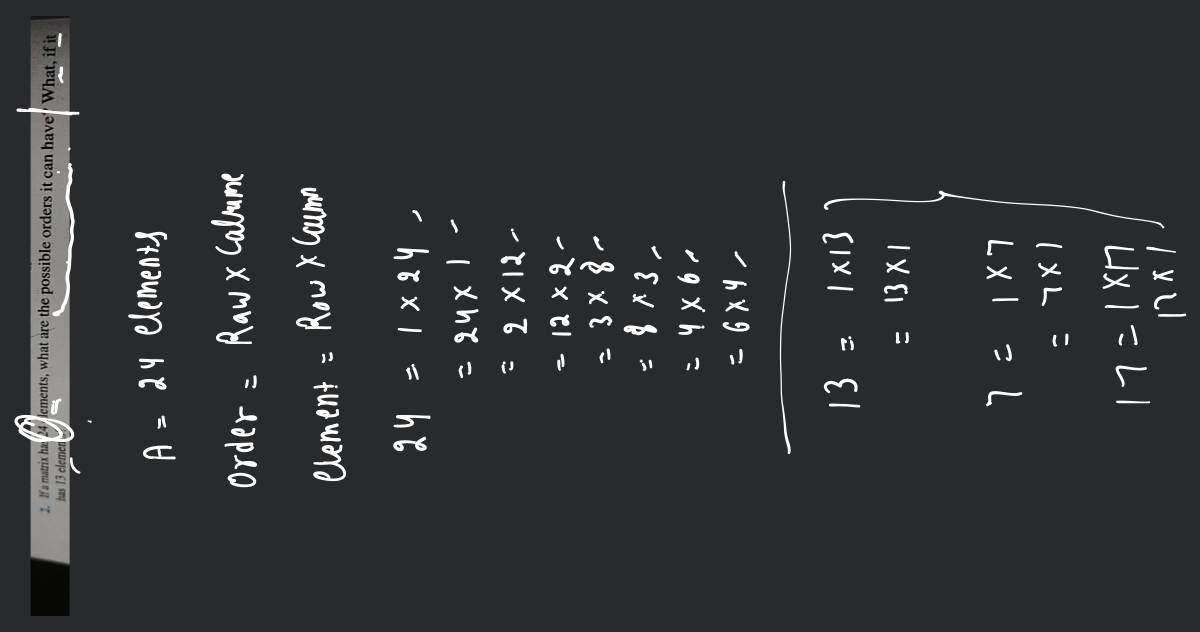 2. If a matrix has 24 elements, what are the possible orders it can have? What, if it
has 13 elemen
A = 24 elements
Order = Raw x Calrume
element = Row x Coumn
24 = 1 x 24
= 24 x 1
= 2 x 12
= 12 x 2
= 3 x 8
= 8 x 3
= 4 x 6
= 6 x 4
13 = 1 x 13
= 13 x 1
7 = 1 x 7
= 7 x 1
17 = 1 x 17
17 x 1